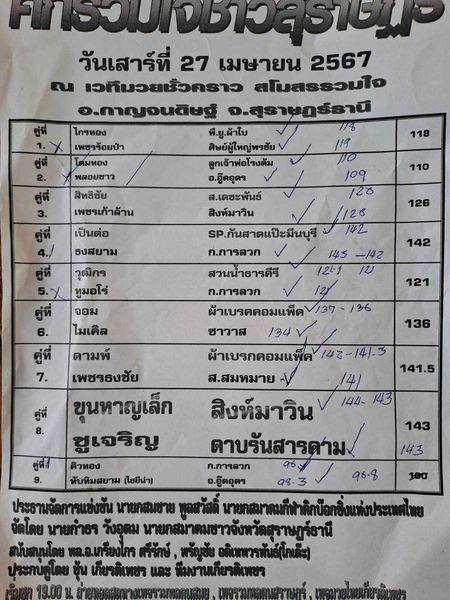 ศึกรวมใจชาวสุราษฎร์
วันเสาร์ที่ 27 เมษายน 2567
ณ เวทีมวยชั่วคราว สโมสรรวมใจ
อ.กาญจนดิษฐ์ จ.สุราษฎร์ธานี
คู่ที่ ไกรทอง พี.ยู.ผ้าใบ 118 118
1. x เพชรร้อยป่า ศิษย์ผู้ใหญ่พรชัย 119
คู่ที่ โต๋มทอง ลูกเจ้าพ่อโรงต้ม 110 110
2. x พลอยขาว อ.อู๊ดอุดร 109
คู่ที่ สิทธิชัย ส.เดชะพันธ์ 126
3. เพชรเก้าล้าน สิงห์มาวิน
คู่ที่ เป็นต่อ SP.กันสาดแป๊ะมีนบุรี 142 142
4. ธงสยาม ก.การลวก 145 -142
คู่ที่ วุฒิกร สวนน้ำธารคีรี 121.1 121 121
5. x ทูมอโร่ ก.การลวก 121
คู่ที่ จอม ผ้าเบรคคอมแพ็ค 137 - 136 136
6. ไมเคิล ซาวาส 134
คู่ที่ ดามพ์ ผ้าเบรกคอมแพ็ค 142 - 141.3 141.5
7. เพชรธงชัย ส.สมหมาย 141
คู่ที่ ขุนหาญเล็ก สิงห์มาวิน 144 - 143 143
8. ชูเจริญ ดาบรันสารดาม 143
คู่ที่ คิวทอง ก.การลวก 100
9. ทับทิมสยาม (ไฮยีน่า) อ.อู๊ดอุดร 98.3 98.8
ประธานจัดการแข่งขัน นายกสมชาย พูลสวัสดิ์ นายกสมาคมกีฬาคิกบ๊อกซิ่งแห่งประเทศไทย
จัดโดย นายกำธร วังอุดม นายกสมาคมชาวจังหวัดสุราษฎร์ธานี
สนับสนุนโดย พล.อ.เกรียงไกร ศรีรักษ์ , หรัญชัย อดิเทพารพันธ์(โกเด๊ะ)
ประกบคู่โดย ชุ้น เกียรติเพชร และ ทีมงานเกียรติเพชร
เริ่มชก 19.00 น.